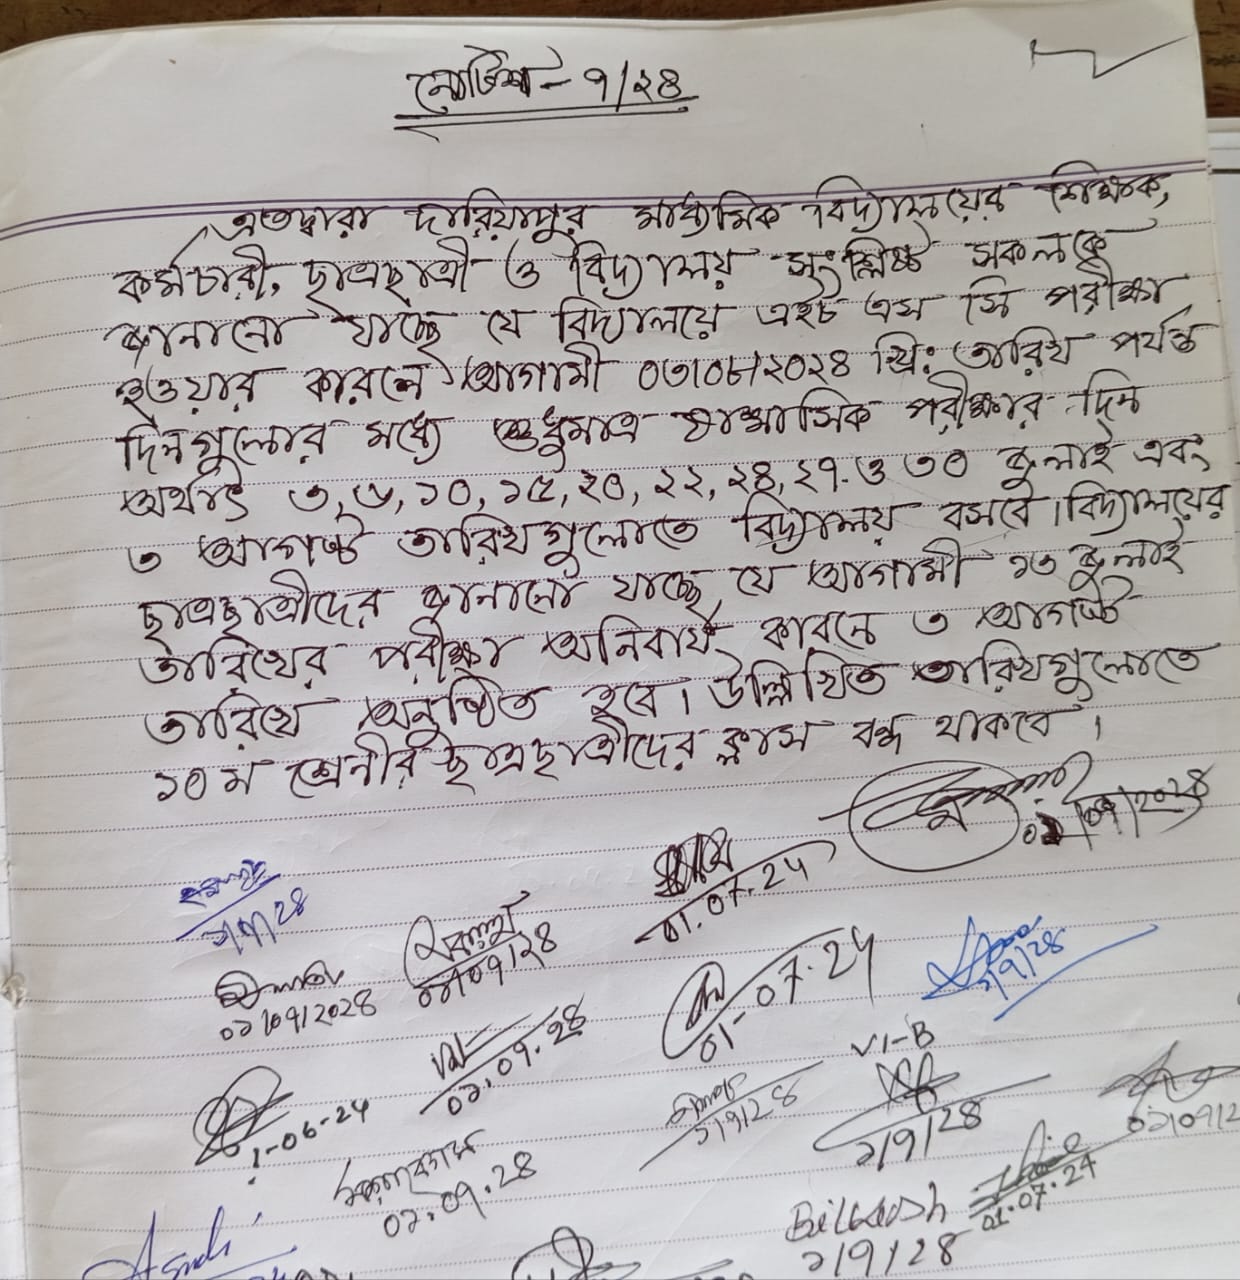 নোটিশ - ৭/২৪
এতদ্বারা দারিয়াপুর মাধ্যমিক বিদ্যালয়ের শিক্ষক,
কর্মচারী, ছাত্রছাত্রী ও বিদ্যালয় সংশ্লিষ্ট সকলকে
জানানো যাচ্ছে যে বিদ্যালয়ে এইচ এস সি পরীক্ষা
হওয়ার কারনে আগামী ০৩/০৮/২০২৪ খ্রি: তারিখ পর্যন্ত
দিনগুলোর মধ্যে শুধুমাত্র ষান্মাসিক পরীক্ষার দিন
অর্থাৎ ৩, ৬, ১০, ১৫, ২০, ২২, ২৪, ২৭ ও ৩০ জুলাই এবং
৩ আগস্ট তারিখগুলোতে বিদ্যালয় বসবে। বিদ্যালয়ের
ছাত্রছাত্রীদের জানানো যাচ্ছে যে আগামী ১৩ জুলাই
তারিখের পরীক্ষা অনিবার্য কারনে ৩ আগস্ট
তারিখে অনুষ্ঠিত হবে। উল্লিখিত তারিখগুলোতে
১০ম শ্রেনীর ছাত্রছাত্রীদের ক্লাস বন্ধ থাকবে।
০১/০৭/২০২৪
01.07.24
১/৭/২৪
০১/০৭/২৪
০১/০৭/২০২৪
১/৭/২৪
01-07-24
০১.০৭.২৪
VI-B
১/৭/২৪
১/৭/২৪
1-06-24
০১.০৭.২৪
01.07.24
১/৭/২৪